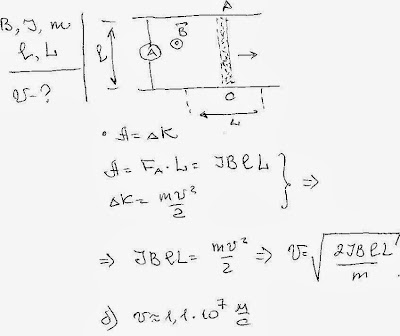 B, J, m
ℓ, L
v-?
ℓ
A
B⃗
A
O
L
• A = ΔK
A = F_A · L = JBℓL
ΔK = mv²/2
} ⇒
⇒ JBℓL = mv²/2 ⇒ v = √(2JBℓL/m)
δ) v ≈ 1,1 · 10⁷ м/с